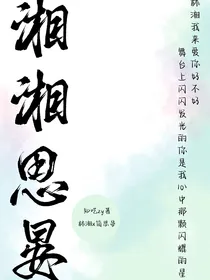 韩湘我来爱你好不好
舞台上闪闪发光的你是我心中那颗闪耀的星
湘湘思晏
知吃zy著